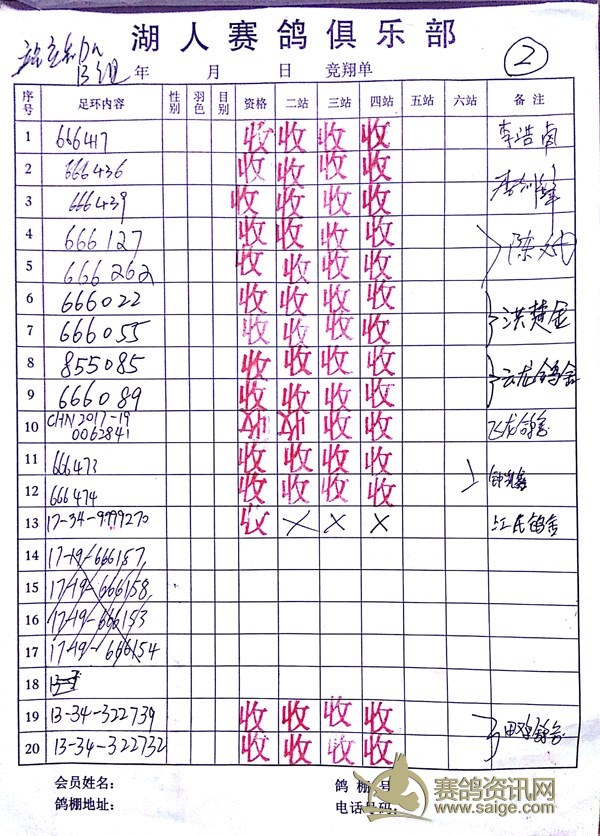 湖人赛鸽俱乐部
②
B组 年 月 日 竞翔单
序号 足环内容 性别 羽色 目别 资格 二站 三站 四站 五站 六站 备注
1 666417 收 收 收 收 李浩南
2 666436 收 收 收 收
3 666439 收 收 收 收
4 666127 收 收 收 收
5 666262 收 收 收 收
6 666022 收 收 收 收 洪楚金
7 666055 收 收 收 收
8 855085 收 收 收 收 云龙鸽舍
9 666089 收 收 收 收
10 CHN2017-19 0062841 收 收 飞龙鸽舍
11 666473 收 收 收 收
12 666474 收 收 收 收
13 17-34-9999270 收 × × × 江氏鸽舍
14 17-19-666157
15 17-19-666158
16 17-19-666153
17 17-19-666154
18
19 13-34-322739 收 收 收 收
20 13-34-322732 收 收 收 收
会员姓名： 鸽棚号
鸽棚地址： 电话号码：
赛鸽资讯网
www.saige.com